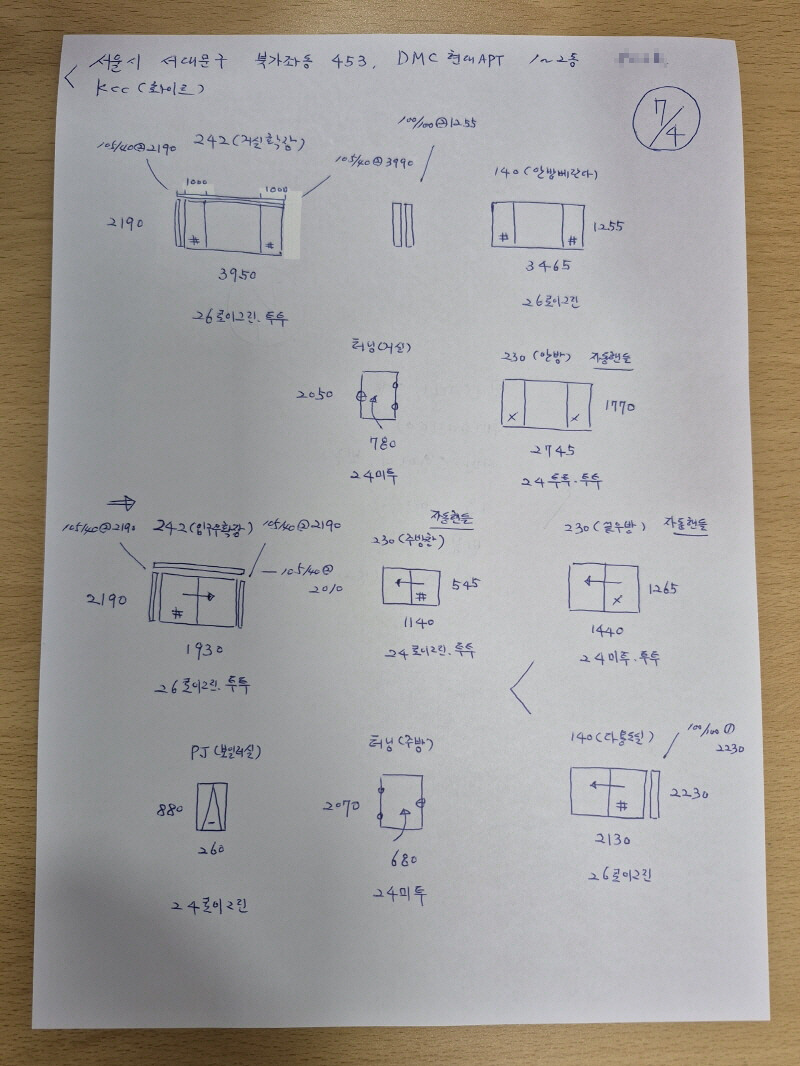 서울시 서대문구 북가좌동 453, DMC 현대APT 1~2동
KCC (화이트)
7/4
105/40@2190
242 (거실확장)
105/40@3990
1000
1000
2190
#
#
3950
26로이그린. 투투
100/100@1255
140 (안방베란다)
#
#
1255
3465
26로이그린
터닝 (거실)
2050
780
24미투
230 (안방) 자동핸들
x
x
1770
2745
24투투. 투투
105/40@2190
242 (입구우확장)
105/40@2190
105/40@
2010
2190
#
1930
26로이그린. 투투
자동핸들
230 (주방환)
#
545
1140
24로이그린. 투투
230 (끝우방) 자동핸들
x
1265
1440
24미투. 투투
PJ (보일러실)
880
260
24로이그린
터닝 (주방)
2070
680
24미투
140 (다용도실)
100/100 ①
2230
#
2230
2130
26로이그린